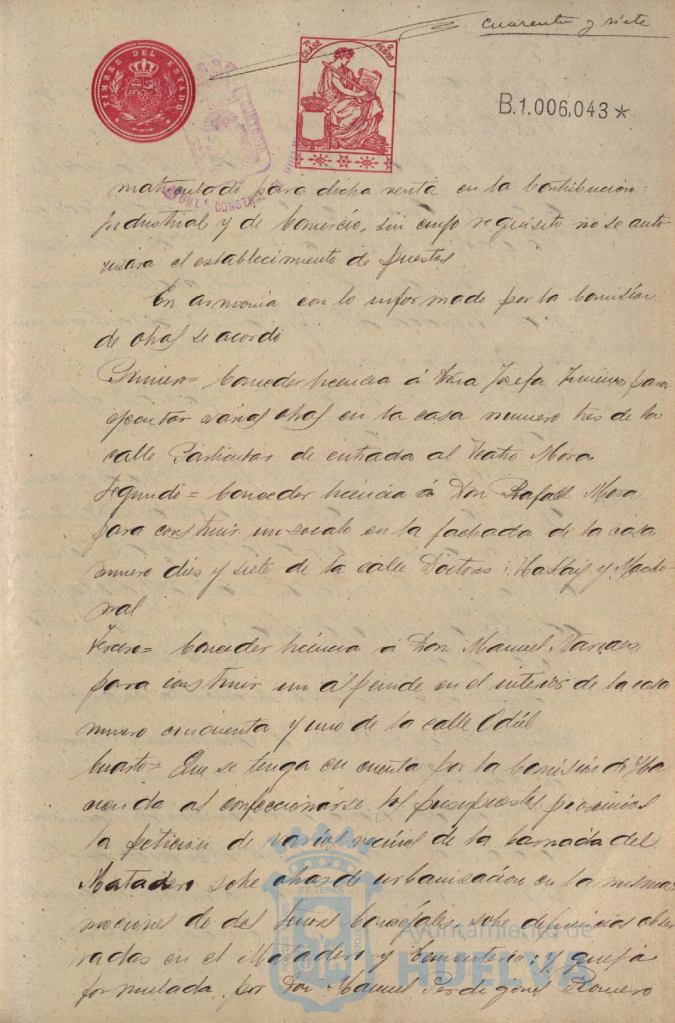 cuarenta y siete
TIMBRE DEL ESTADO
7ª CLASE 2 PESETAS
B.1.006,043*
matriculado para dicha venta en la Contribucion
Industrial y de Comercio, sin cuyo requisito no se auto-
rizara el establecimiento de puestos
En armonia con lo informado por la Comisión
de obras se acordó
Primero= Conceder licencia á Doña Josefa Jimenez para
ejecutar varias obras en la casa numero tres de la
calle Particular de entrada al Teatro Mora
Segundo= Conceder licencia á Don Rafael Mora
para construir un zocalo en la fachada de la casa
numero dies y siete de la calle Doctores y
Tercero= Conceder licencia á Don Manuel
para construir un alpende en el interior de la casa
numero cincuenta y uno de la calle Odiel
Cuarto= Que se tenga en cuenta por la Comisión de Ha
cienda al confeccionarse los presupuestos proximos
la peticion de varios vecinos de la barriada del
Matadero sobre obras de urbanizacion en la misma
mociones de del Señores Concejales sobre deficiencias obser
vadas en el Matadero y Cementerio; y queja
formulada por Don Manuel Perdigones Romero
Ayuntamiento de
HUELVA